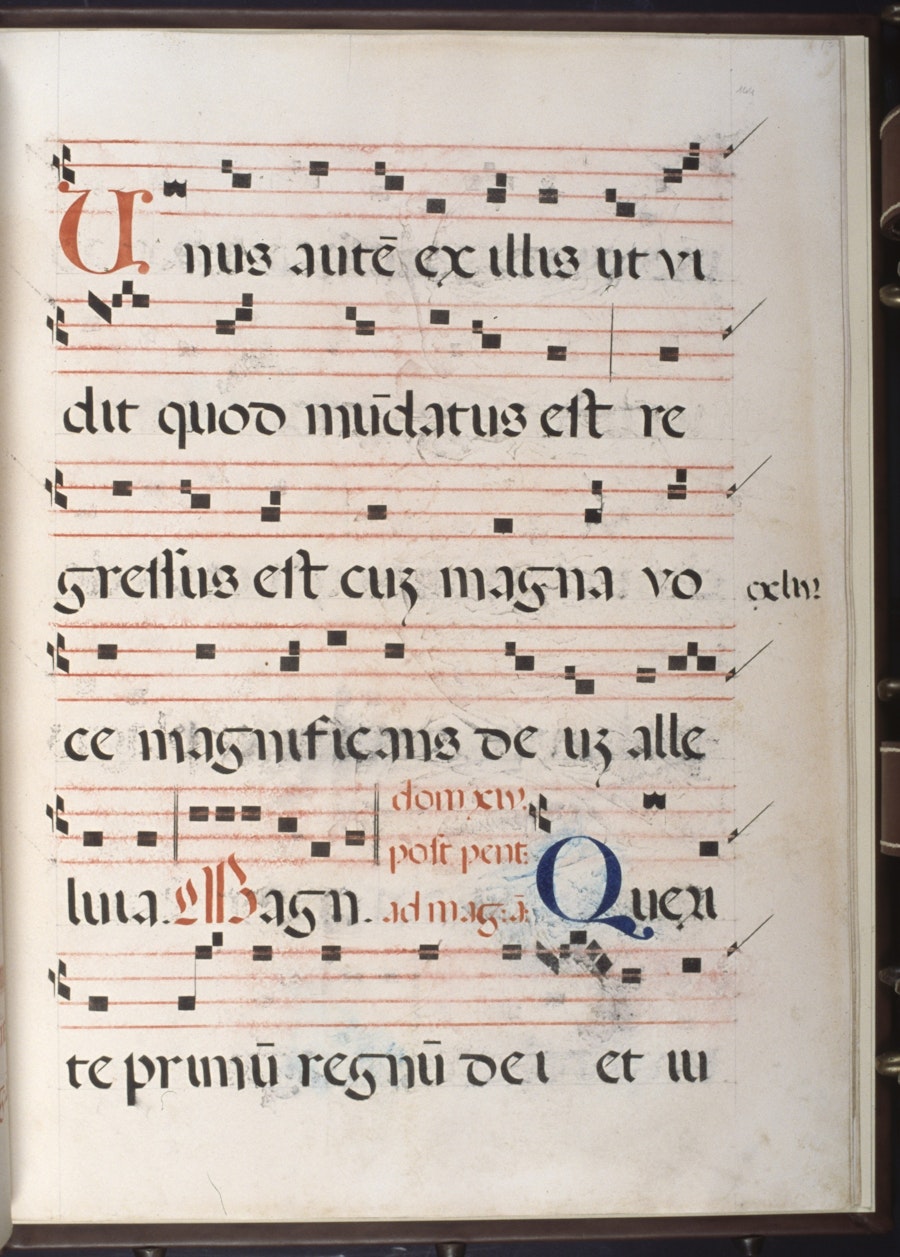 144
Unus autē ex illis ut vi
dit quod mūdatus est re
gressus est cuꝫ magna vo
cxliiij
ce magnificans de uꝫ alle
luia. Magn. dom xiv. post pent: ad mag: ā: Queri
te primū regnū dei et iu